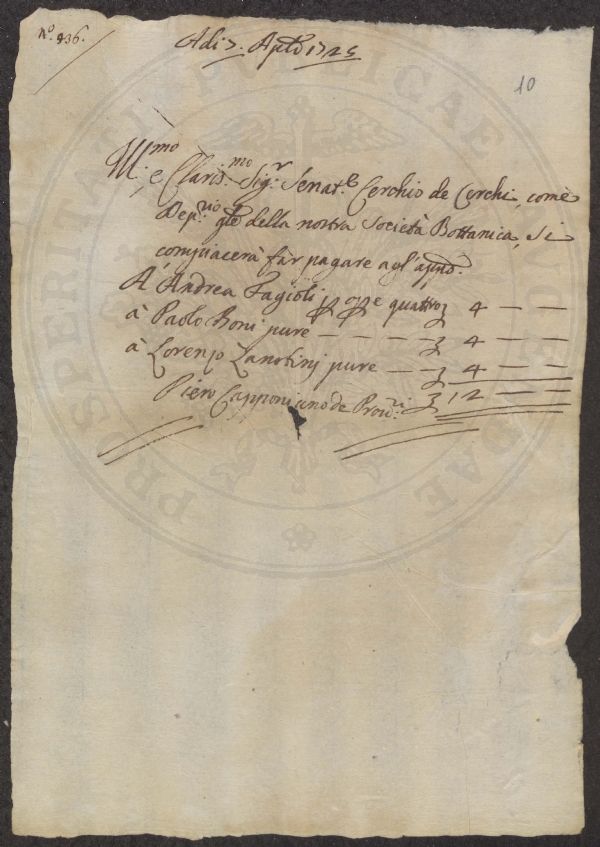 Nº. 936.
Adi 7. Aple 1725
10
Ill.mo e Claris.mo Sig.r Senat.e Cerchio de Cerchi, come
Dep.rio gle della nostra Società Bottanica, si
compiacerà far pagare agl'app.di
A Andrea Fagioli £ £ one quattro £ 4 — —
à Paolo Boni pure — — — — £ 4 — —
à Lorenzo Lanotinj pure — — £ 4 — —
Piero Capponi uno de Prov.ri £ 12 — —
PROSPERITATI PUBLICAE AUGENDAE